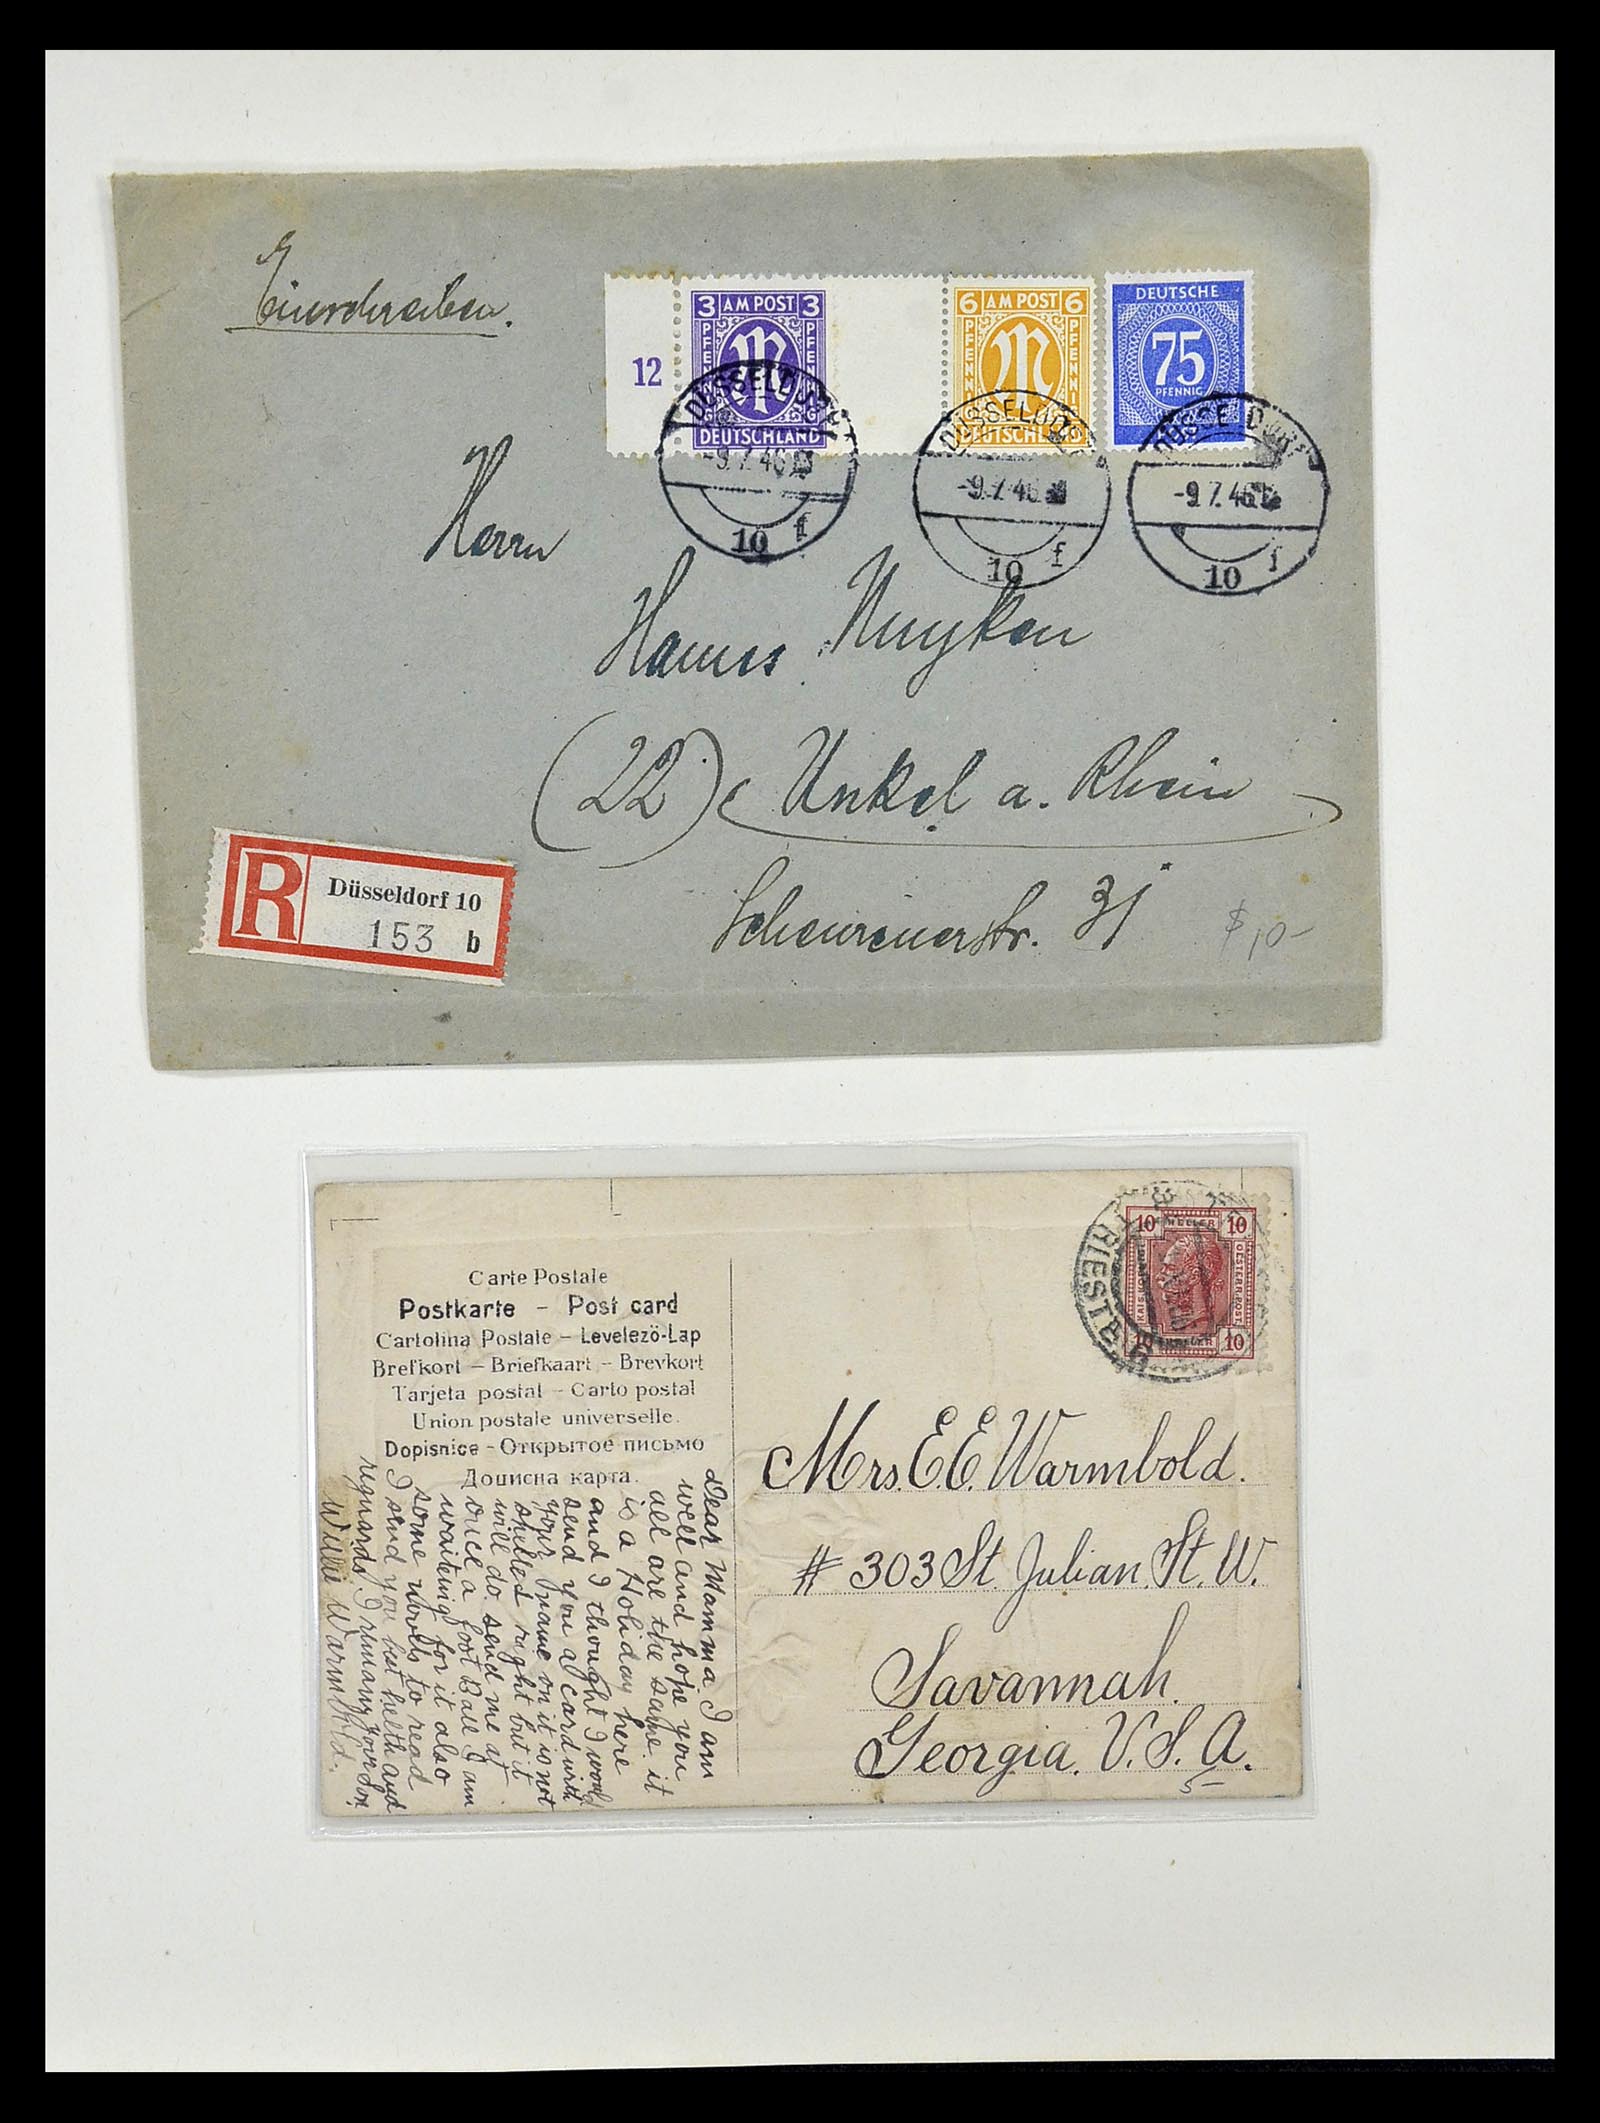 Einschreiben.
12
3 AM POST 3
PFENNIG PFENNIG
DEUTSCHLAND
6 AM POST 6
PFENNIG PFENNIG
DEUTSCHLAND
DEUTSCHE
75
PFENNIG
DÜSSELDORF
-9.7.46
10 f
DÜSSELDORF
-9.7.46
10 f
DÜSSELDORF
-9.7.46
10 f
Herrn
Hanns Nuyken
(22) Unkel a. Rhein
Scheurenerstr. 31
$10-
R Düsseldorf 10
153 b
Carte Postale
Postkarte – Post card
Cartolina Postale – Levelezö-Lap
Brefkort – Briefkaart – Brevkort
Tarjeta postal – Carto postal
Union postale universelle.
Dopisnice – Открытое письмо
Дописна карта.
10 HELLER 10
KAIS. KÖN. OESTERR. POST
10 HELLER 10
TRIEST
Mrs. E. E. Warmbold.
# 303 St. Julian. St. W.
Savannah.
Georgia. U. S. A.
5-
Dear Mamma I am
well and hope you
all are the same. it
is a Holiday here
and I thought I would
send you a card with
your name on it is not
spelled right but it
will do. send me at
once a foot Ball I am
waiteing for it also
some novels to read
I send you best helth and
reguards I remain your Son,
Willie Warmbold.